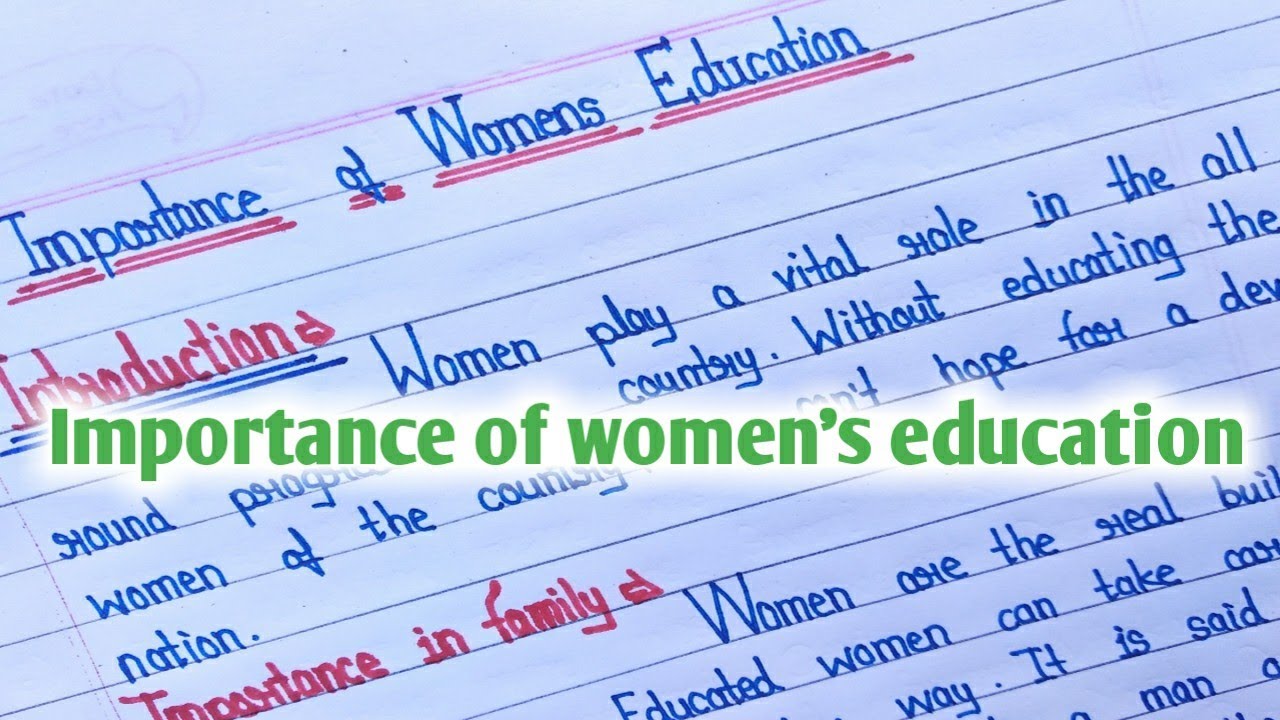 Importance of Womens Education
Introduction ⇒ Women play a vital role in the all
round country. Without educating the
Importance of women’s education
women of the country can't hope for a dev
nation.
Importance in family ⇒ Women are the real buil
Educated women can take car
way. It is said
a man